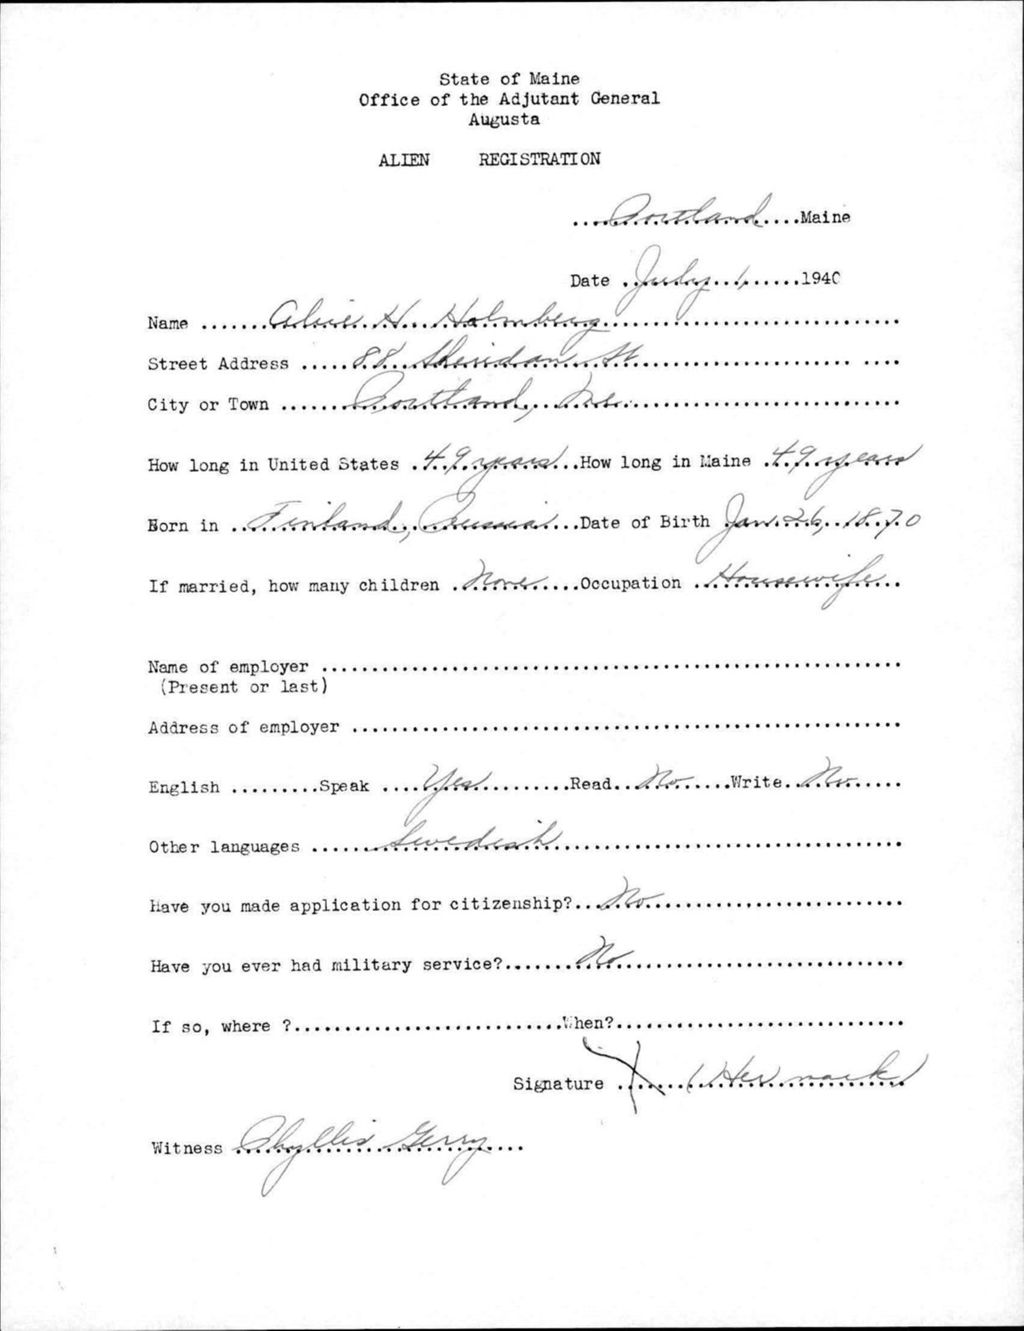 State of Maine
Office of the Adjutant General
Augusta
ALIEN REGISTRATION
....Portland....Maine
Date ..July 1,......1940
Name .......H. Holmberg..............................
Street Address .....88 Sheridan St..................... ....
City or Town ......Portland, Me.........................
How long in United States .49 years...How long in Maine .49 years
Born in ..Finland, Russia...Date of Birth Jan. 26, 1870
If married, how many children .None.....Occupation ..Housewife..
Name of employer ...................................................
(Present or last)
Address of employer ................................................
English .........Speak ....Yes..........Read..No......Write..No.....
Other languages ......Swedish..............................
Have you made application for citizenship?...No......................
Have you ever had military service?.......No.........................
If so, where ?..........................When?.........................
Signature ..X....(Her mark)
Witness Phyllis Gerry....